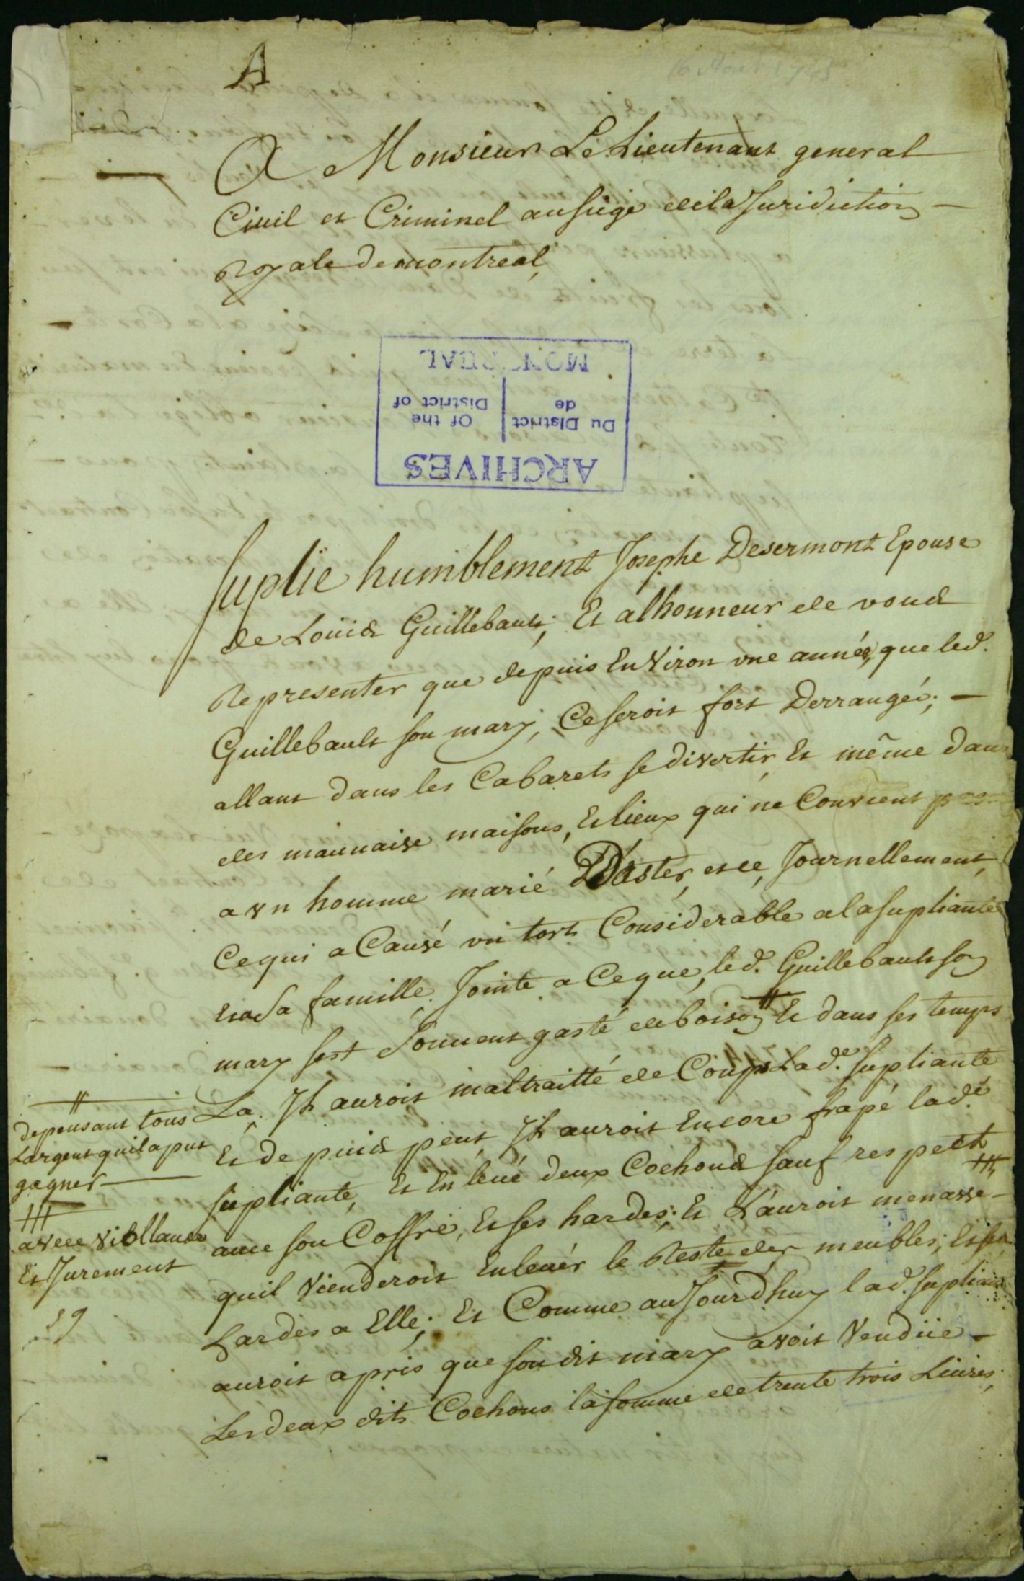 A
16 Aout 1743
A Monsieur Le Lieutenant general
Civil et Criminel au siege de la Juridiction
Royale de montreal,
ARCHIVES
Du District Of the
de District of
MONTREAL
Suplie humblement Josephe Desermont Epouse
de Loüis Guillebault; Et a lhonneur de vous
Representer que depuis EnViron une année, que led.
Guillebault son mary, Ce seroit fort Derrangée;
allant dans les Cabarets se divertir, Et même dans
des mauvaise maisons, Et lieux qui ne Convient pas
a un homme marié D'aster, et ce, Journellement,
Ce qui a Causé un tort Considerable a la supliante
Et a Sa famille. Jointe a Ce que, led. Guillebault son
mary sest Souvent gasté de boison # Et dans ses temps
La, Il auroit maltraitté de Coups Lad.e supliante
Et de puis peut, Il auroit Encore frapé lad.te
supliante, Et En levé deux Cochons sauf respect
avec son Coffre, Et ses hardes; Et L'auroit menassé
quil Vienderoit Enlevér le Reste des meubles, Et ses
hardes a Elle; Et Comme au Jourd'huy lad. supliante
auroit apris que son dit mary avoit Vendüe
Les deux dits Cochons la somme de trente trois Livres,
#
depensant tous
Largent quil a put
gagner
###
avece Viollance
Et Jurement